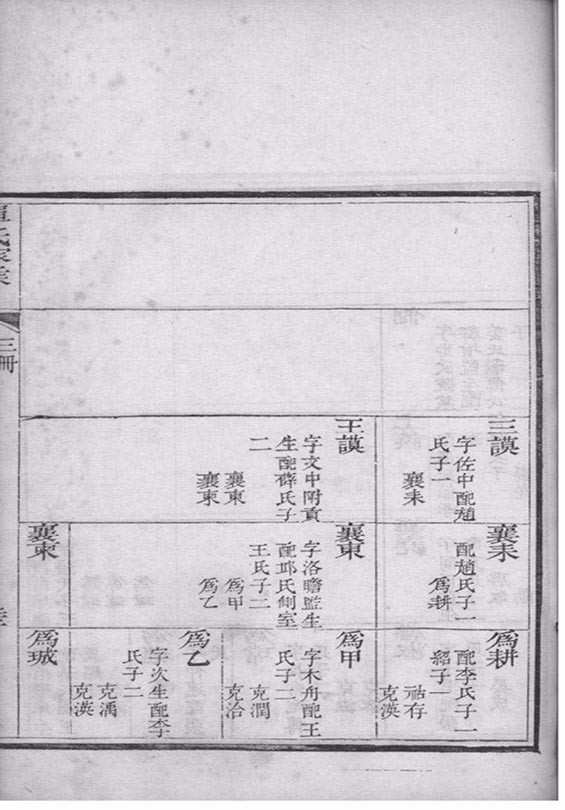 三謨
字佐中配趙
氏子一
襄耒
王謨
字文中附貢
生配薛氏子
二
襄東
襄柬
襄耒
配趙氏子一
爲耕
襄東
字洛瞻監生
配邱氏側室
王氏子二
爲甲
爲乙
襄柬
爲耕
配李氏子一
紹子一
祜存
克漢
爲甲
字木舟配王
氏子二
克潤
克洽
爲乙
字次生配李
氏子二
克漢
爲珹
氏家乘
三冊